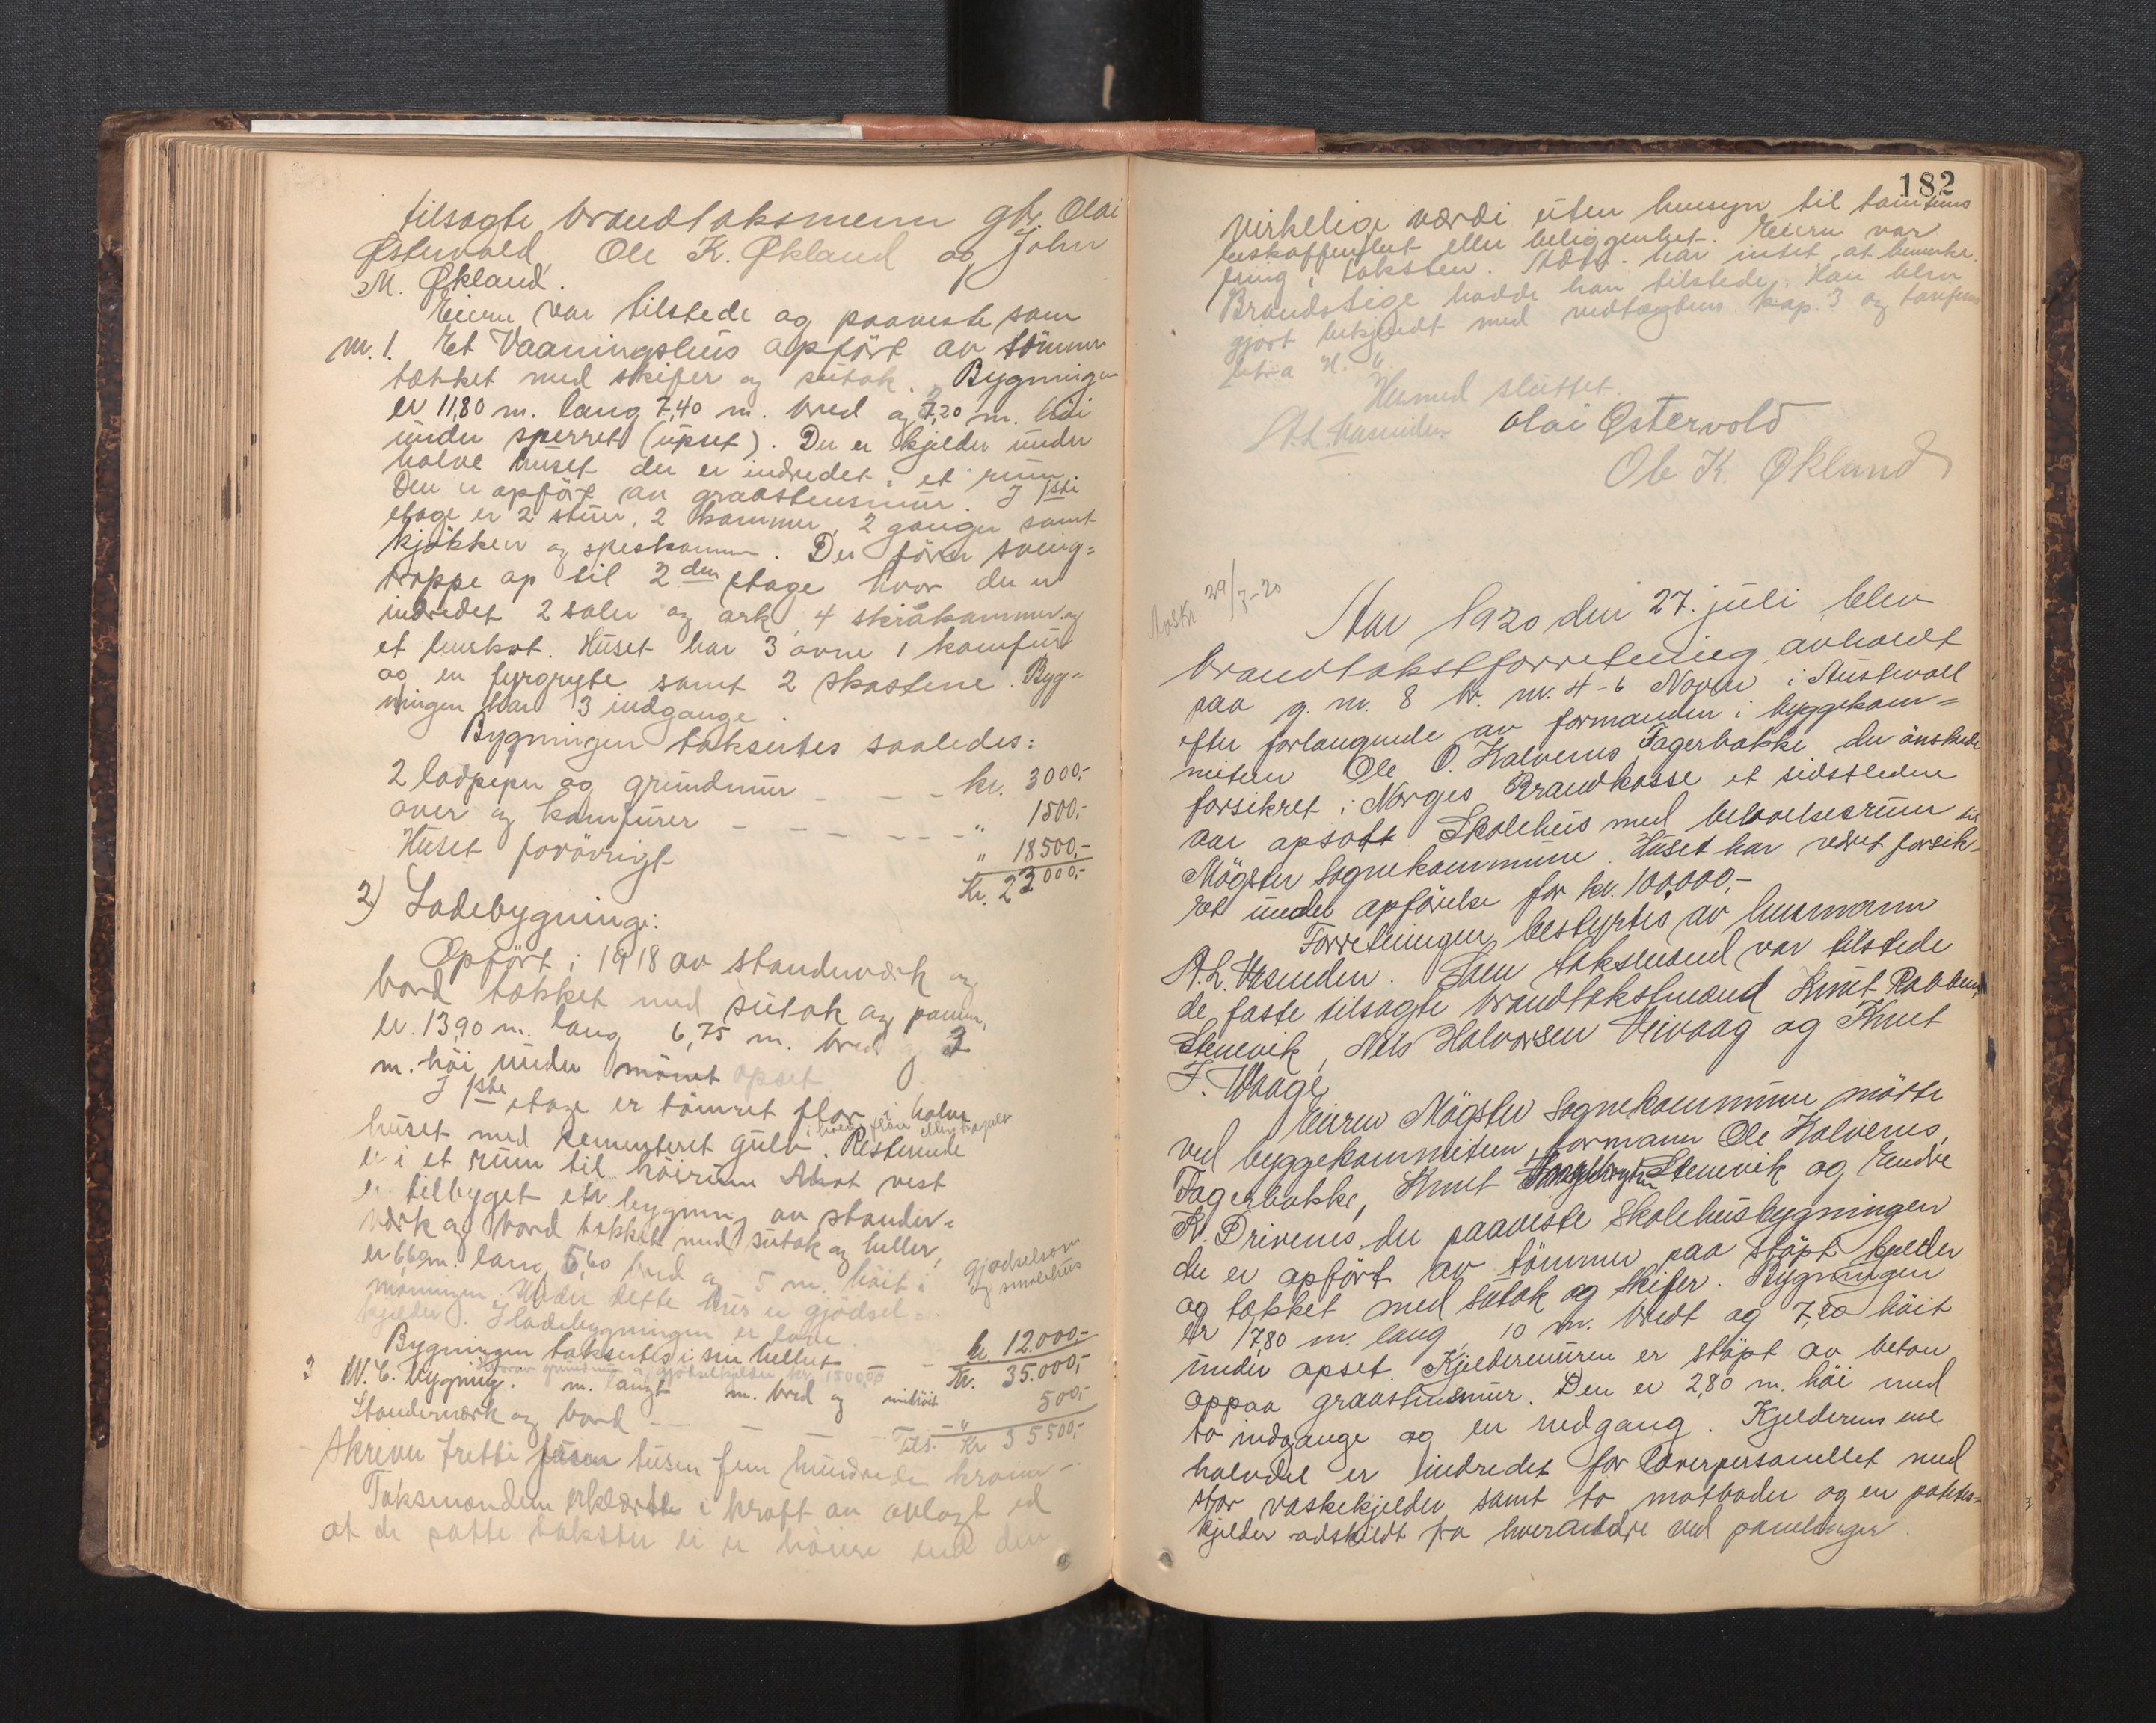 tilsagte brandtaksmenn gbr. Olai
Østervold, Ole K. Økland og John
M. Økland.
Eieren var tilstede og paaviste som
nr. 1. Et Vaaningshus opført av tømmer
tækket med skifer og sutak. Bygningen
er 11,80 m. lang 7,40 m. bred og 7,20 m. høi
under sperret (upset). Der er kjelder under
halve huset der er indredet i et rum.
Den er opført av graastensmur. I 1ste
etage er 2 stuer, 2 kammer, 2 ganger samt
kjøkken og speskammer. Der fører sving=
trappe op til 2den etage hvor der er
indredet 2 saler og ark, 4 skråkammer og
et Huset har 3 ovne 1 komfur
og en fyrgryte samt 2 skostene. Byg=
ningen har 3 indgange.
Bygningen taksertes saaledes:
2 ladpiper og grundmur - - - kr. 3000,-
over og kamfurer - - - - - - " 1500,-
Huset forøvrigt " 18500,-
Kr. 23000,-
2) Ladebygning:
Opført i 1918 av standerværk og
bord tækket med sutak og panner,
er 13,90 m. lang 6,75 m. bred og 3
m. høi under mønet opset
I 1ste etage er tømret flor i halve
huset med cementeret gulv. Resterende
er i et rum til høirum Mot vest
er tilbygget en bygning av stander=
værk og bord tækket med sutak og heller,
er 6,60 m. lang 5,60 bred og 5 m. høit i
mønningen. Under dette hus er gjødsel=
kjelder. I ladebygningen er lave
gjødselrom
og smalehus
Bygningen taksertes i sin helhet - kr. 12.000,-
hvorav grundmur og gjødselkjelder kr. 1500,00
Kr. 35.000,-
3 W.C. bygning. m. langt m. bred og m høit
Standerværk og bord - 500,-
Tils. Kr 35500,-
Skriver tretti fem tusen fem hundrede kroner -
Taksmændene erklærte i kraft av avlagt ed
at de satte takster ei er høiere end den
182
virkelige værdi uten hensyn til tomtens
beskaffenhet eller beliggenhet. Eieren var
tilstede. har intet at bemerke.
Brandstige hadde han tilstede. Han blev
gjort bekjendt med vedtægtens kap. 3 og tariffens
litra H.
Hermed sluttet.
A.L. Vasenden Olai Østervold
Ole K. Økland
29/7-20
Aar 1920 den 27. juli blev
brandtakstforretning avholdt
paa g. nr. 8 br. nr. 4-6 i Austevoll
efter forlangende av formanden i byggekom=
miteen Ole O. Kalvenes Fagerbakke, der ønskede
forsikret i Norges Brandkasse et sidstledne
aar opsatt Skolehus med beboelsesrum til
Møgster sognekommune. Huset har været forsik=
ret under opførelse for kr. 100,000,-
Forretningen bestyrtes av lensmann
A. L. Vasenden. Som taksmænd var tilstede
de faste tilsagte brandtakstmænd Knut
Stenevik, Nils Halvorsen Veivaag og Knut
F. Vaage
Eieren Møgster sognekommune møtte
ved byggekommiteen, formann Ole Kalvenes,
Fagerbakke, Knut Stenevik og Endre
K. Drivenes der paaviste Skolehusbygningen
der er opført av tømmer paa støpt kjelder
og tækket med sutak og skifer. Bygningen
er 17,80 m. lang, 10 m. bredt og 7,20 høit
under opset. Kjeldermuren er støpt av beton
oppaa graastensmur. Den er 2,80 m. høi med
to indgange og en nedgang. Kjelderens ene
halvdel er indredet for lærerpersonellet med
stor vaskekjelder samt to matboder og en potetes=
kjelder adskildt fra hverandre ved panelinger.